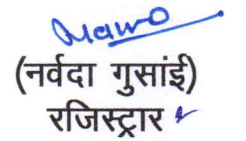 (नर्वदा गुसांई)
रजिस्ट्रार